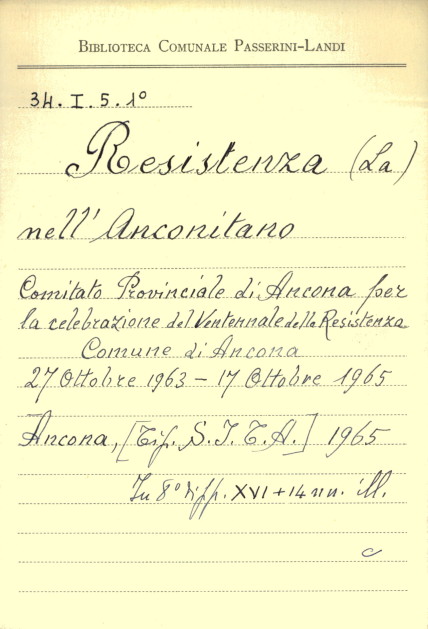 BIBLIOTECA COMUNALE PASSERINI-LANDI
34. I. 5. 1°
Resistenza (La)
nell' Anconitano
Comitato Provinciale di Ancona per
la celebrazione del Ventennale della Resistenza
Comune di Ancona
27 Ottobre 1963 – 17 Ottobre 1965
Ancona, [Tip. S.I.T.A.] 1965
In 8° di pp. XVI + 14 nn. ill.
c